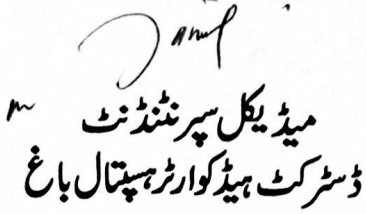 میڈیکل سپرنٹنڈنٹ
ڈسٹرکٹ ہیڈکوارٹر ہسپتال باغ